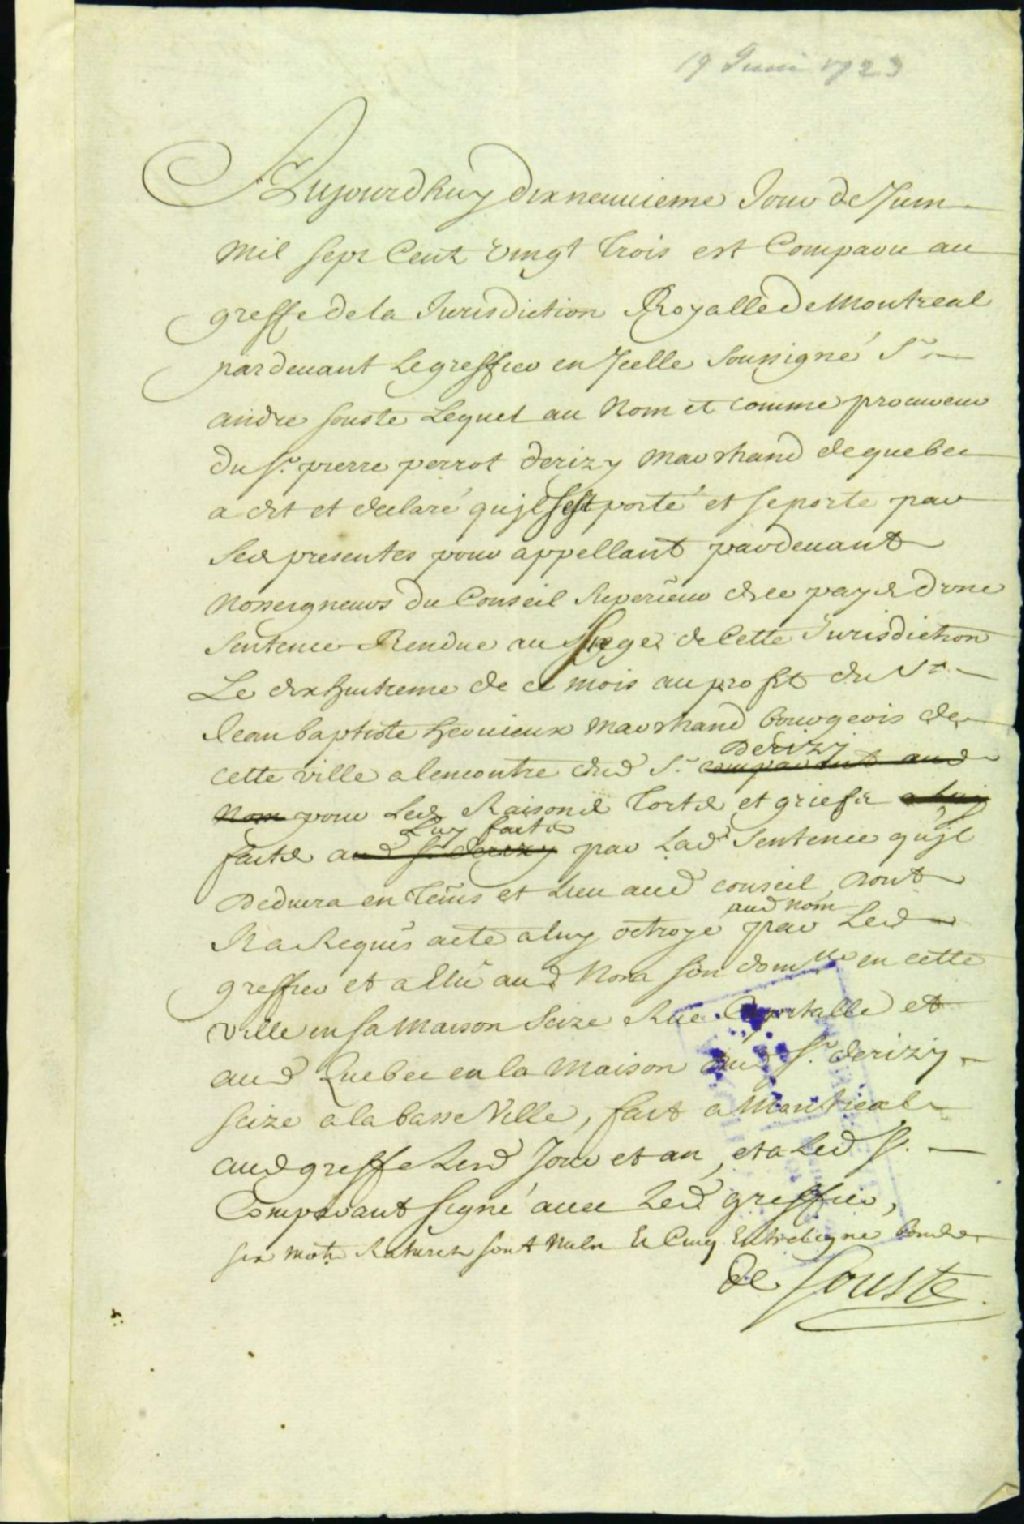 19 Juin 1723
Aujourdhuy dixneuuieme Jour de Juin
mil sept Cent vingt trois est Comparu au
greffe de la Jurisdiction Royalle de Montreal
pardeuant Le greffier en Jcelle soussigné Sr.
andre souste Lequel au Nom et comme procureur
du Sr. pierre perrot derizy marchand de quebec
a dit et declaré qujl sest porté et se porte par
ses presentes pour appellant pardeuant
nosseigneurs du Conseil superieur de ce pays dune
sentence Rendue au siege de Cette Jurisdiction
Le dixhuitieme de ce mois au profit du Sr.
Jean baptiste heruieux marchand bourgeois de
derizy
cette ville alencontre dud Sr. comparant aud
Nom pour Les Raisons torts et griefs a luy
Luy faits
faits aud Sr. derizy par Lad sentence qujl
Deduira en tems et Lieu aud conseil, dont
aud nom
Il a Requis acte a luy octroyé par Led
greffier et a Elu aud Nom son domlle en cette
ville en sa maison seize Rue Capitalle et
aud Quebec en la maison dud Sr. derizy
seize a la basse Ville, fait a Montreal
aud greffe Lesd Jour et an, et a Led Sr.
Comparant signé auec Led greffier,
six mots Raturez sont nuls Et Cinq Entreligne bons
de Souste